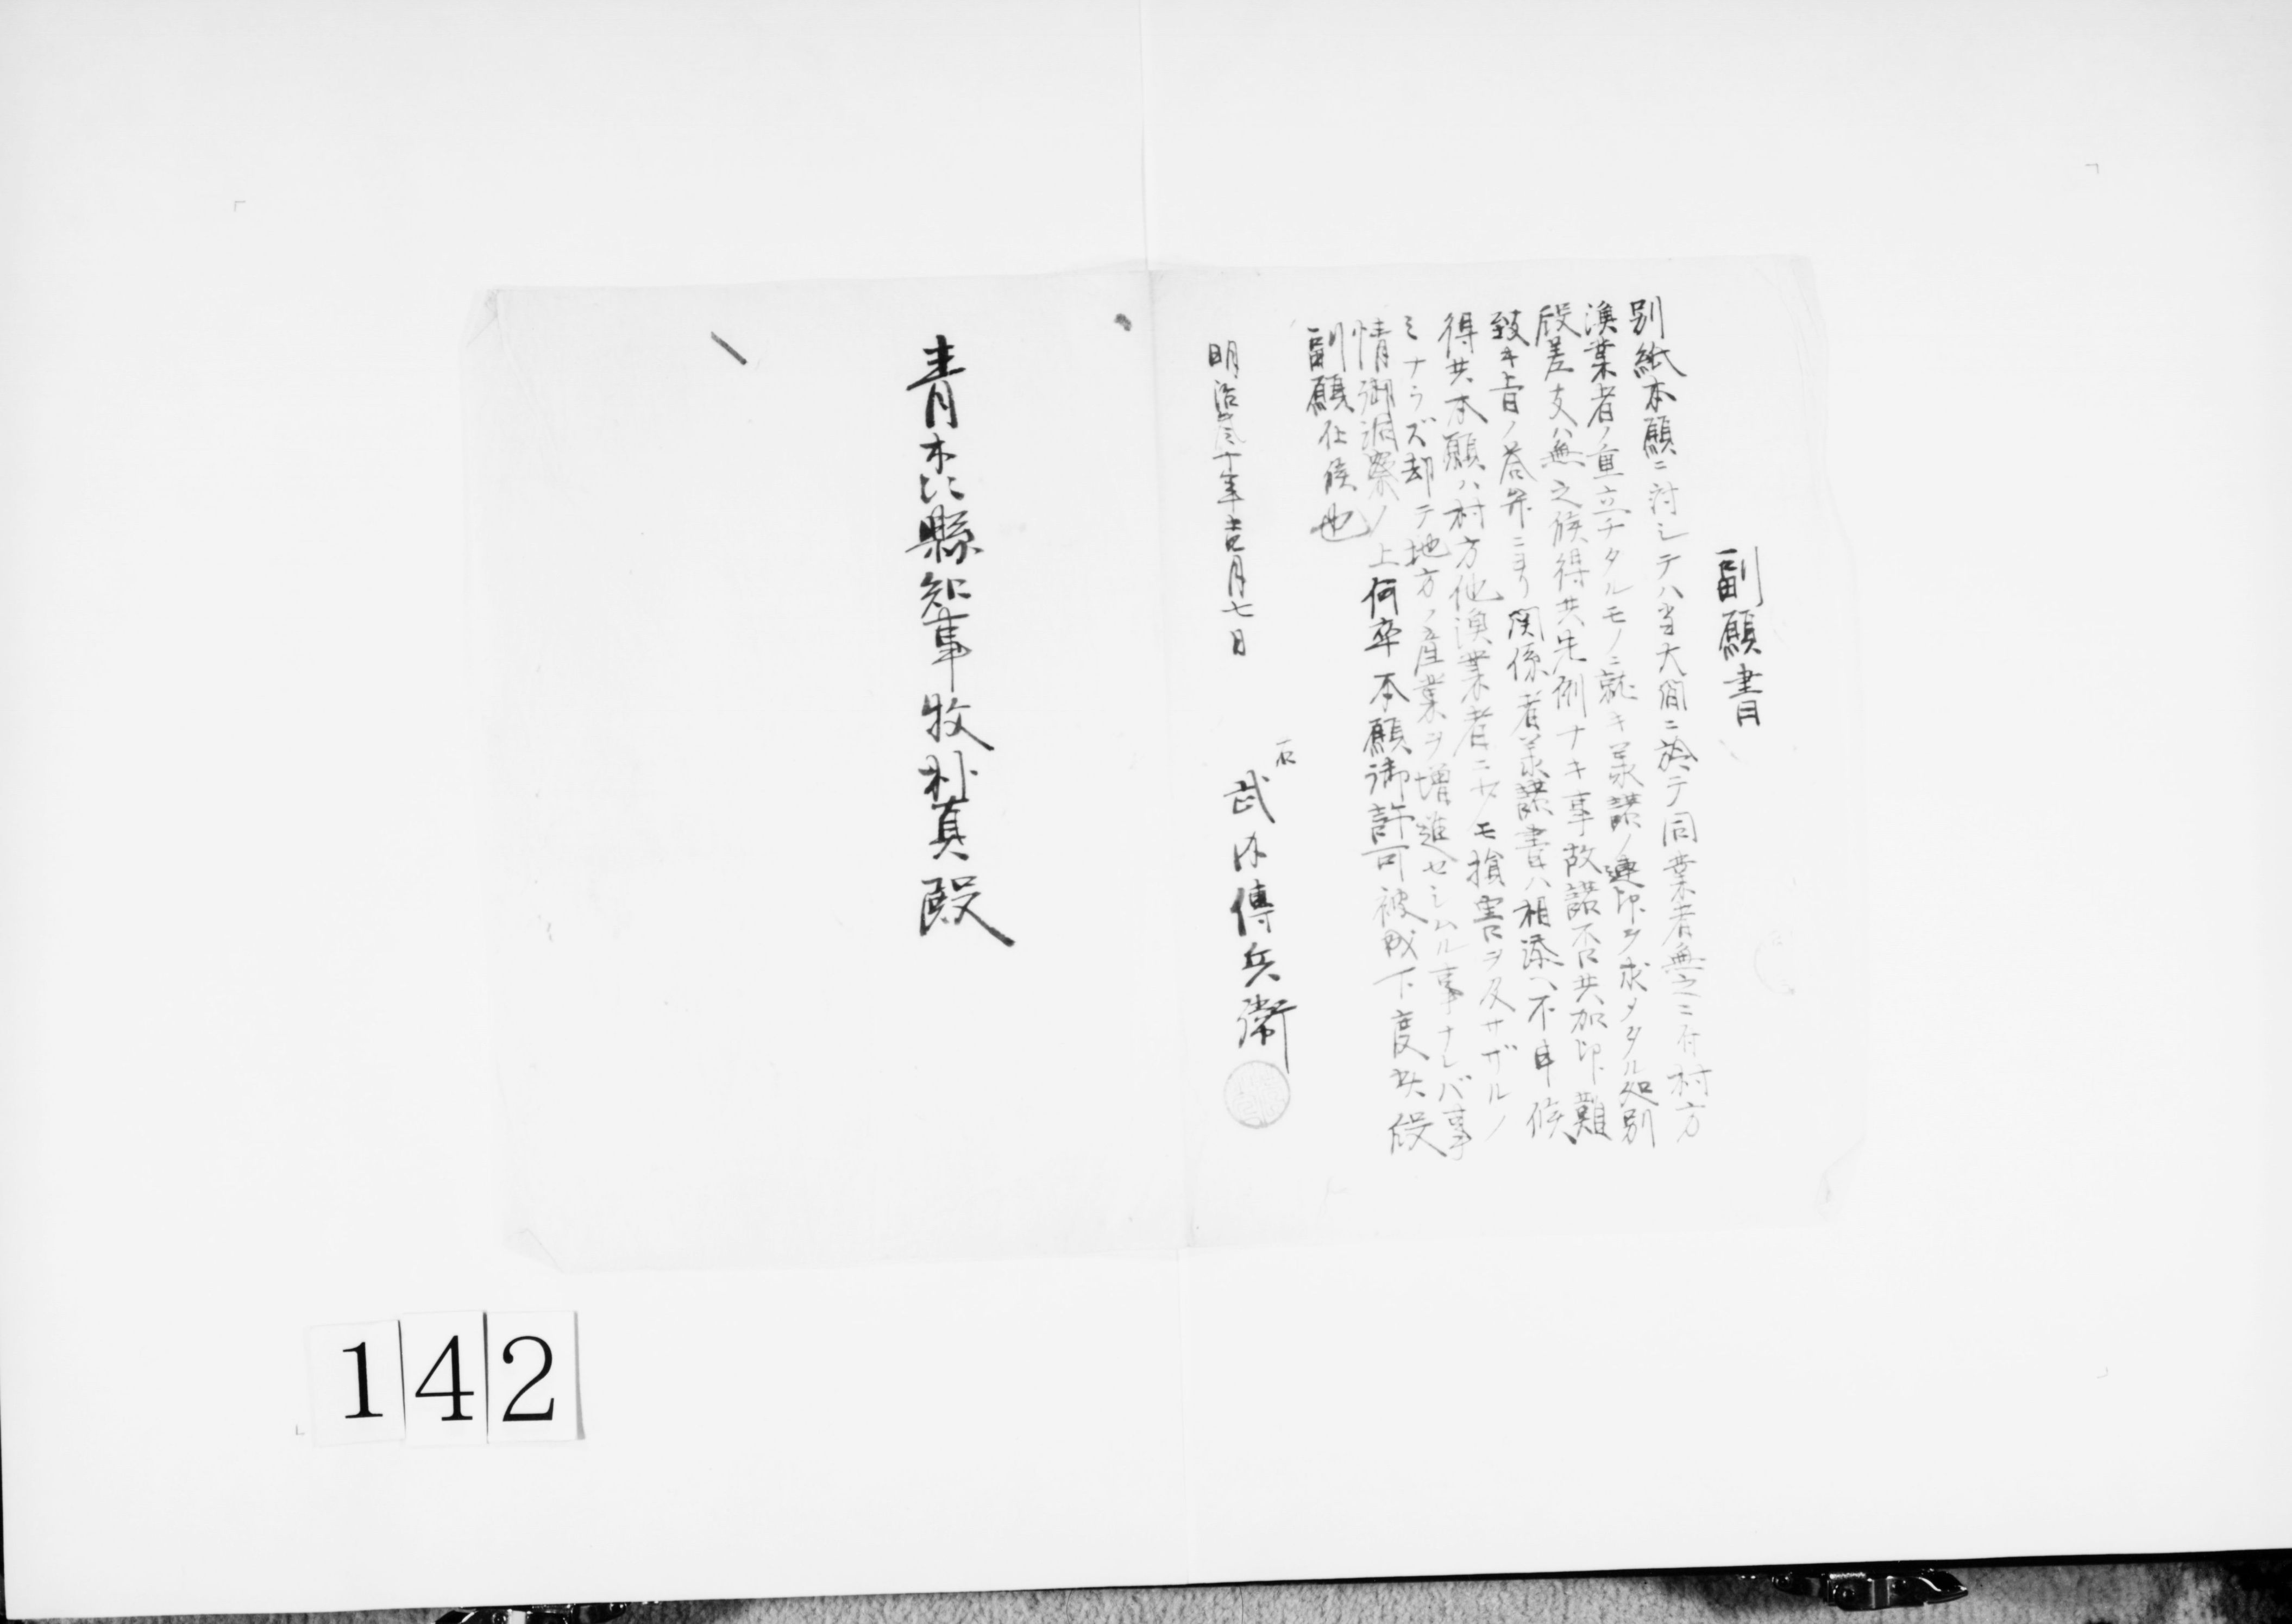 副願書
別紙本願ニ対シテハ当大間ニ於テ同業者無之ニ付村方
漁業者ノ重立チタルモノニ就キ承諾ノ連印ヲ求メタル処別
段差支ハ無之候得共先例ナキ事故諾否共加印難
致キ旨ノ答弁ニヨリ関係者承諾書ハ相添ヘ不申候
得共本願ハ村方他漁業者ニ毛損害ヲ及サザルノ
ミナラズ却テ地方ノ産業ヲ増進セシムル事ナレバ事
情御洞察ノ上何卒本願御許可被成下度此段
副願仕候也
明治三十年十二月七日
右
武内傳兵衛
青木県知事牧朴真殿
142